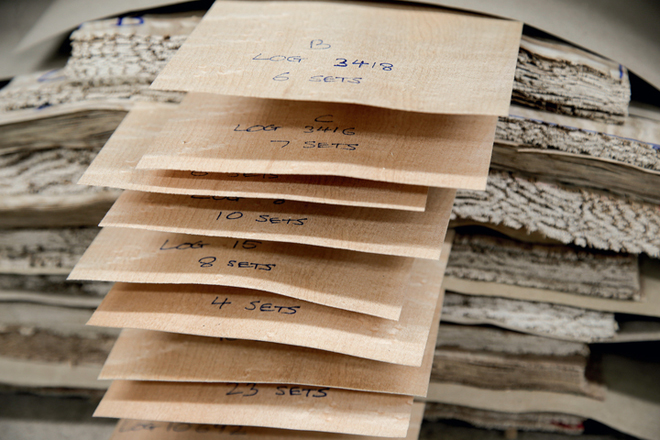 B
LOG 3418
6 SETS
C
LOG 3416
7 SETS
SETS
LOG 8
10 SETS
LOG 15
8 SETS
4 SETS
23 SETS
LOG 10